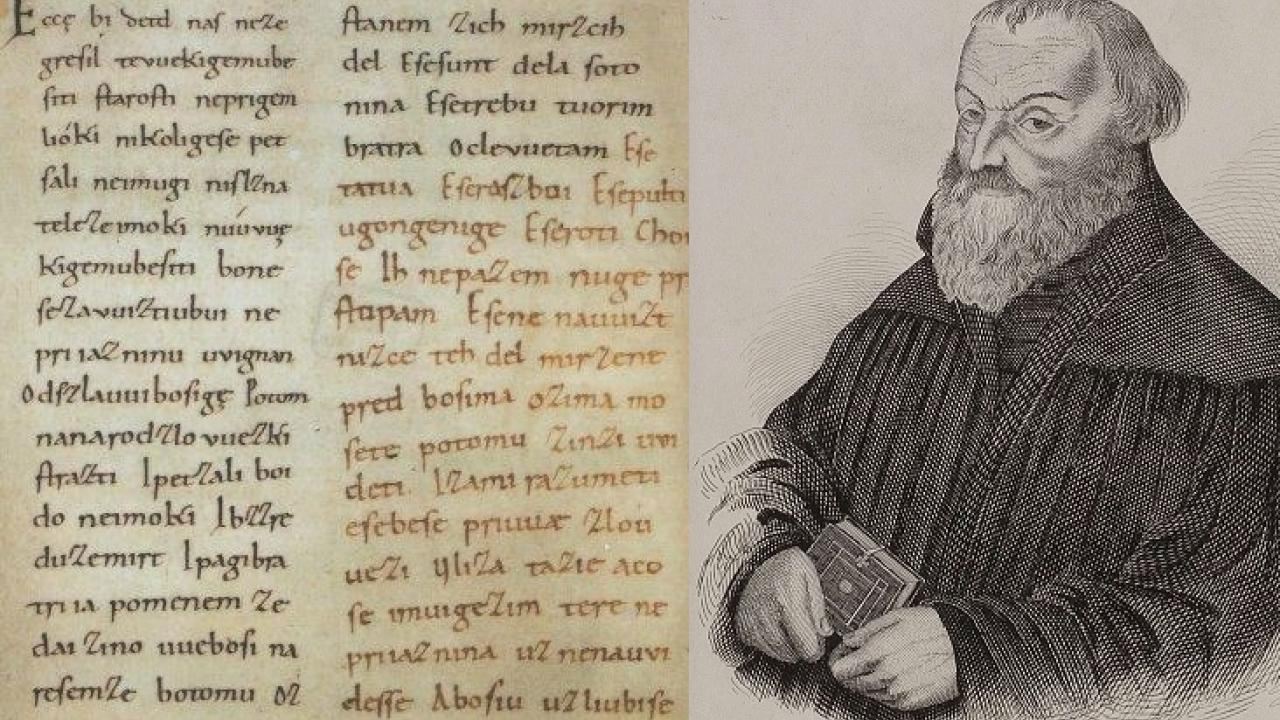 Eccę bi detd naſ neze
greſil tevuekigemube
ſiti ſtaroſti neprigem
lióki nikoligeſe pet
ſali neimugi niſlzna
telezeimoki niúvvę
kigemubeſiti bone
ſezavuiztiubui ne
priiazninu uvignan
Odſzlauuiboſigę Potom
nanarodzlovuezki
ſtrazti Ipetzali boi
do neimoki Ibzzre
duzemirt Ipagibra
triia pomenem ze
dai zino uueboſi na
reſemze botomu oz
ſtanem zich mirzcih
del Eſeſunt dela ſoto
nina Eſetrebu tuorim
bratra Oclevuetam Eſe
tatua Eſeraſzboi Eſepulti
ugongenige Eſeroti Choi
ſe Ih nepazem nuge pr
ſtopam Eſene nauuizt
nizce teh del mirzene
pred boſima ozima mo
ſete potomu zinzi uvi
deti Izami razumeti
eſebeſe priuuæ zlou
uezi Uliza tazie aco
ſe imuigezim tere ne
priiaznina uznenauvi
deſſe Aboſiu uzliubiſe